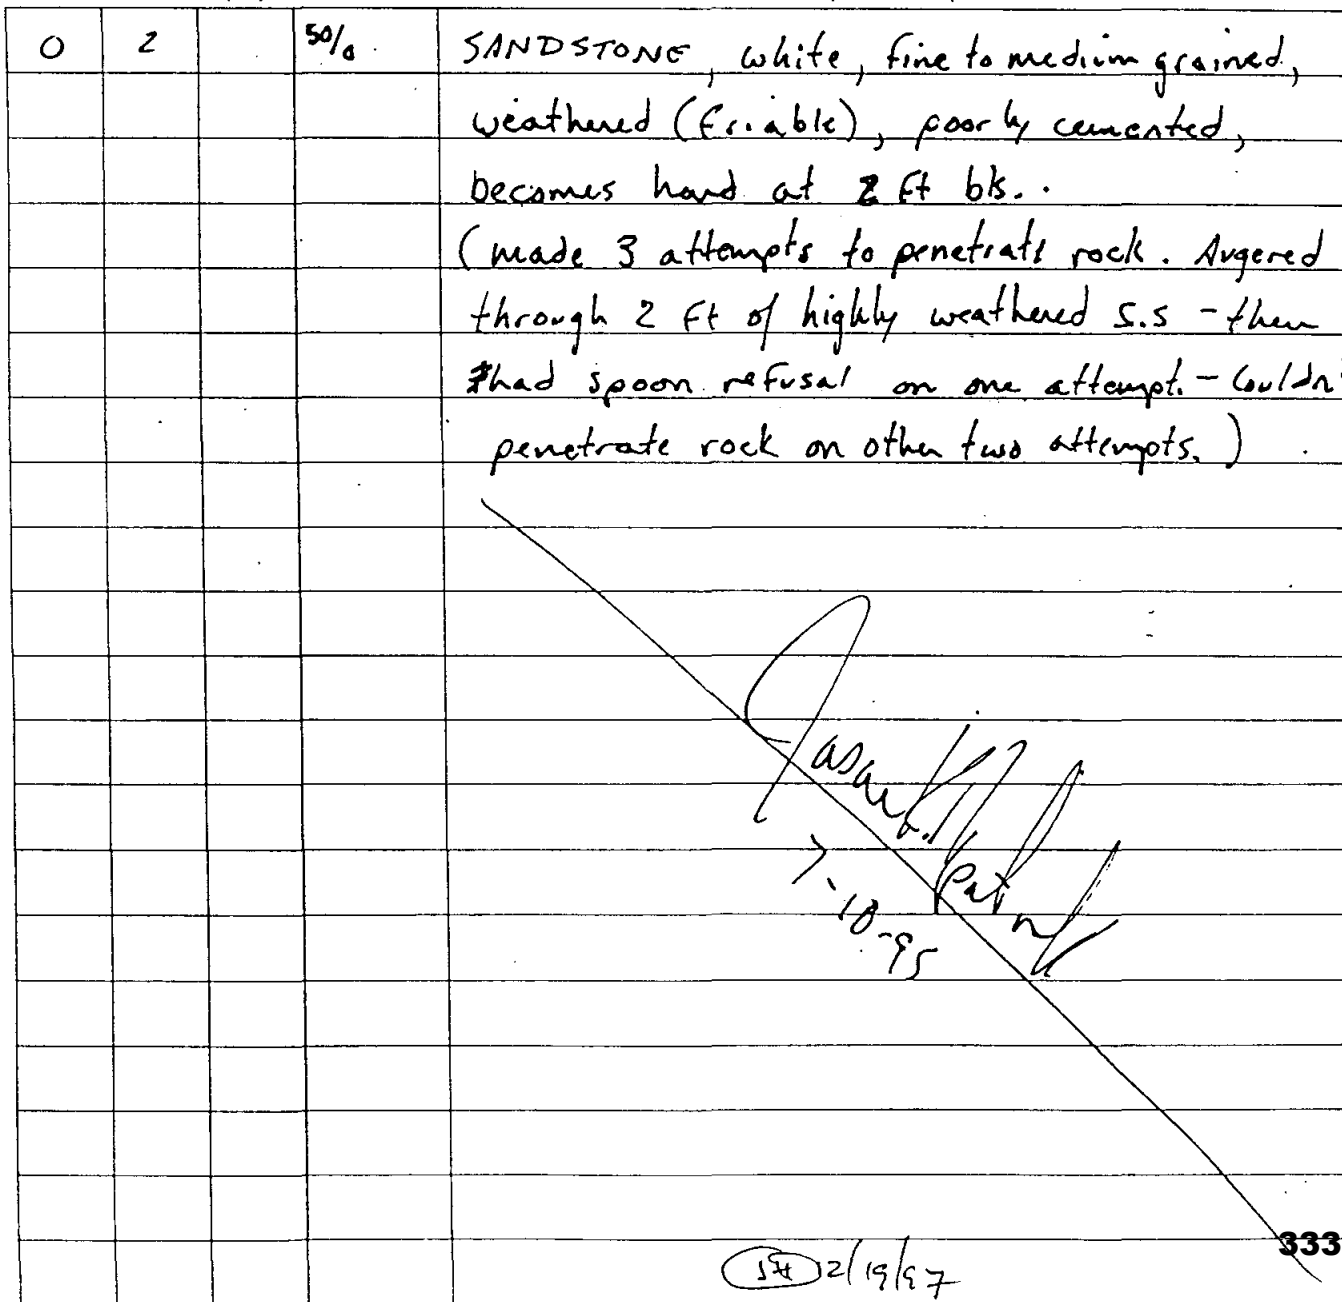 0 2 50/0 SANDSTONE, white, fine to medium grained,
weathered (friable), poorly cemented,
becomes hard at 2 ft bls.
(made 3 attempts to penetrate rock. Augered
through 2 ft of highly weathered S.S - then
had spoon refusal on one attempt. - Couldn'
penetrate rock on other two attempts.)
7-10-95
2/19/97
333